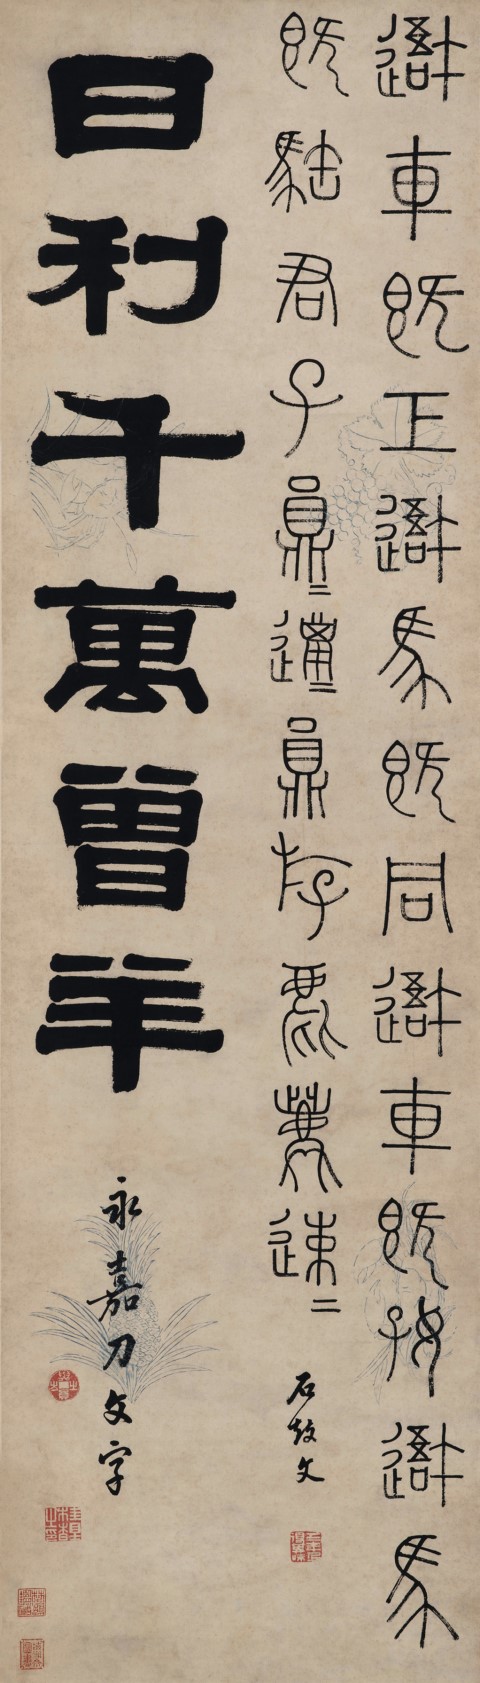 吾車既工吾馬既同吾車既好吾馬
既𩣡君子員=邋=員斿麀鹿速=
石鼓文
日利千萬曾羊
永嘉刀文字